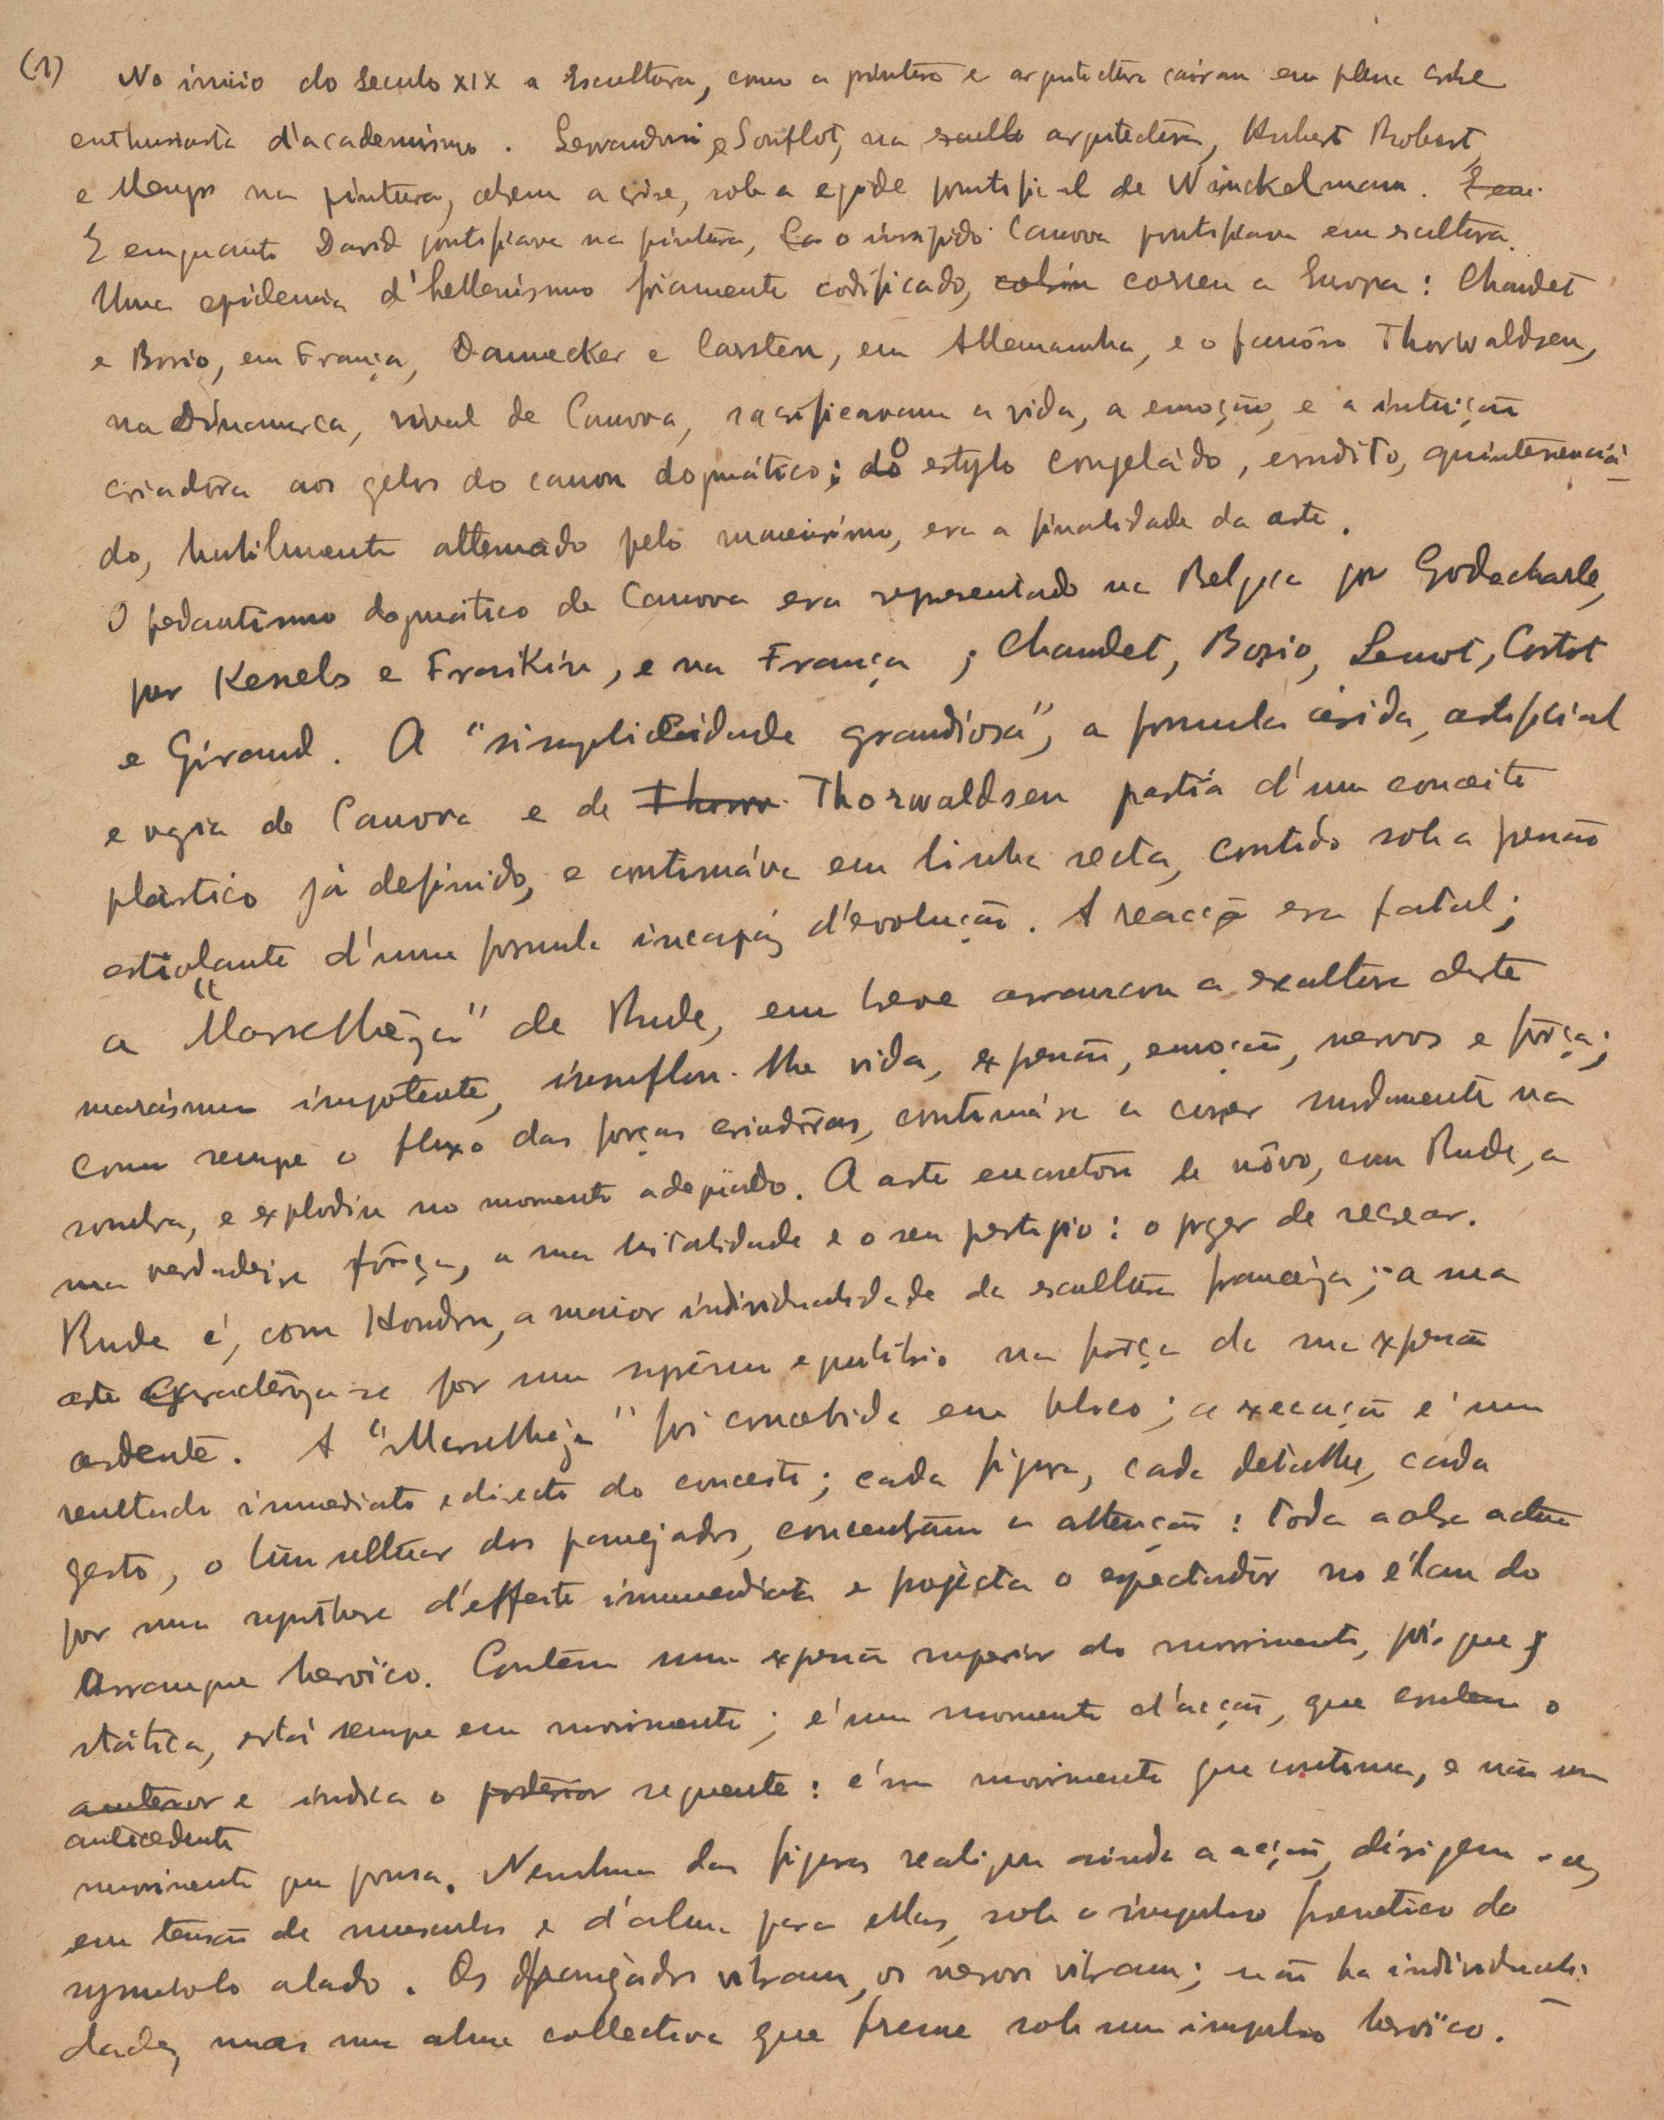 (1) No início do seculo XIX a Escultura, como a pintura e arquitectura cairam em plena crise
enthusiasta d'academismo. Servandoni e Souflot, na arquitectura, Hubert Robert,
e Mengs na pintura, abrem a crise, sob a egide pontifical de Winckelmann.
E emquanto David pontificava na pintura, o insipido Canova pontificava em escultura.
Uma epidemia d'hellenismo friamente codificado, correu a Europa: Chaudet
e Bosio, em França, Dannecker e Carsten, em Allemanha, e o famôso Thorwaldsen,
na Dinamarca, rival de Canova, sacrificavam a vida, a emoção, e a intuição
criadôra aos gelos do canon dogmático; o estylo congeládo, erudito, quintessenciá-
do, inutilmente attenuado pelo maneirismo, era a finalidade da arte.
O pedantismo dogmático de Canova era representado na Belgica por Godecharle,
por Kessels e Fraikin, e na França, Chaudet, Bosio, Lemot, Cortot
e Giraud. A "simplicidade grandiosa", a formula árida, artificial
e vazia de Canova e de Thorwaldsen partía d'um conceito
plástico já definido, e continuáva em linha recta, contido sob a pressão
estiolante d'uma formula incapáz d'evolução. A reacção era fatal;
a "Marselhêza" de Rude, em breve arrancou a escultura deste
marásmo impotente, insuflou-lhe vida, expressão, emoção, nervos e fôrça;
como sempe o fluxo das forças criadôras, continuára a correr surdamente na
sombra, e explodiu no momento adequado. A arte encontrou de nôvo, com Rude, a
sua verdadeira fôrça, a sua vitalidade e o seu prestigio: o prazer de recrear.
Rude é, com Houdon, a maior individualidade da escultura francêza; a sua
arte caractériza-se por um suprêmo equilibrio na fôrça de sua expressão
ardente. A "Marselhêza" foi concebida em bloco; a execução é um
resultado immediato e directo do conceito; cada figura, cada detalhe, cada
gesto, o tumultuar dos panejados, concentram a attenção: toda a obra actúa
por uma synthese d'effeito immediato e projecta o espectadôr no élan do
arranque heroïco. Contêm uma expressão superior do movimento, pois que,
státtica, está sempe em movimento; é um momento d'acção, que contem o
antecedente e indica o seguente: é um movimento que continua, e não um
movimento que pousa. Nenhuma das figuras realiza ainda a acção, dirigem-se,
em tensão de musculos e d'alma para ella, sob o impulso frenetico do
symbolo alado. Os panejados vibram, os nervos vibram; não ha individuali-
dades, mas uma alma collectiva que freme sob um impulso heroïco.